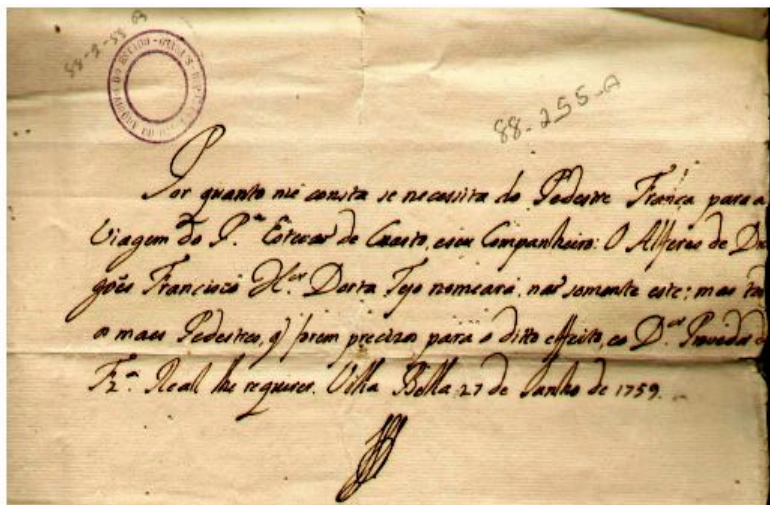 88-2-55 A
88-255-A
Por quanto me consta se necessita do Pedestre França para a
Viagem do P.e Estevaõ de Crasto, eseu Companheiro: O Alferes de Dra
goẽs Francisco X.er Tejo nomeará, naõ somente este; mas
o mais Pedestres, q' forem precizos para o ditto effeito, eo D.or Provedor d
Fz.a Real lhe requerer. Villa Bella 27 de Junho de 1759.